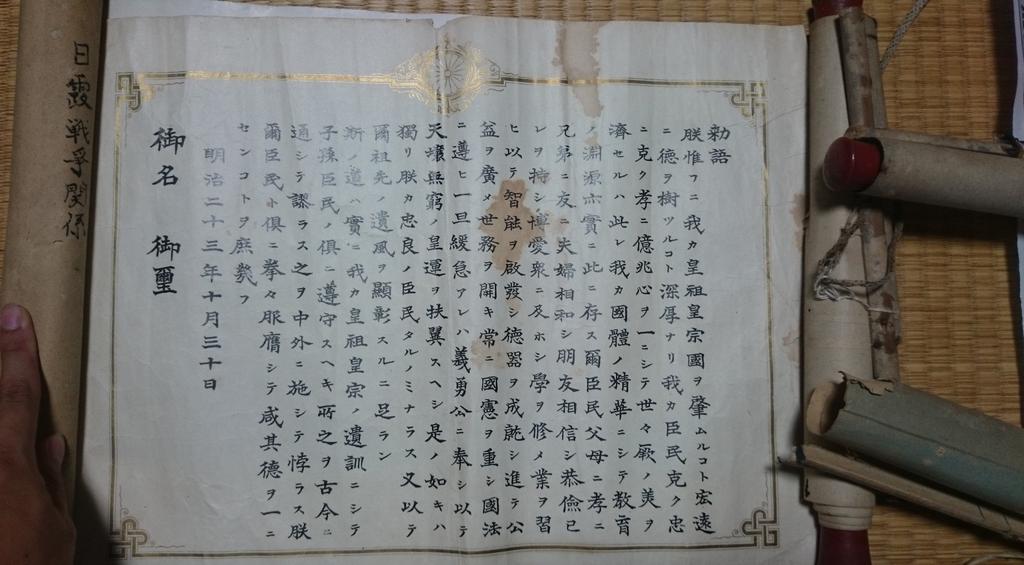 勅語
朕惟フニ我カ皇祖皇宗國ヲ肇ムルコト宏遠
ニ德ヲ樹ツルコト深厚ナリ我カ臣民克ク忠
ニ克ク孝ニ億兆心ヲ一ニシテ世々厥ノ美ヲ
濟セルハ此レ我カ國體ノ精華ニシテ教育
ノ淵源亦實ニ此ニ存ス爾臣民父母ニ孝ニ
兄弟ニ友ニ夫婦相和シ朋友相信シ恭儉己
レヲ持シ博愛衆ニ及ホシ學ヲ修メ業ヲ習
ヒ以テ智能ヲ啟發シ德器ヲ成就シ進テ公
益ヲ廣メ世務ヲ開キ常ニ國憲ヲ重シ國法
ニ遵ヒ一旦緩急アレハ義勇公ニ奉シ以テ
天壤無窮ノ皇運ヲ扶翼スヘシ是ノ如キハ
獨リ朕カ忠良ノ臣民タルノミナラス又以テ
爾祖先ノ遺風ヲ顯彰スルニ足ラン
斯ノ道ハ實ニ我カ皇祖皇宗ノ遺訓ニシテ
子孫臣民ノ俱ニ遵守スヘキ所之ヲ古今ニ
通シテ謬ラス之ヲ中外ニ施シテ悖ラス朕
爾臣民ト俱ニ拳々服膺シテ咸其德ヲ一ニ
センコトヲ庶幾フ
明治二十三年十月三十日
御名 御璽
日露戦争関係